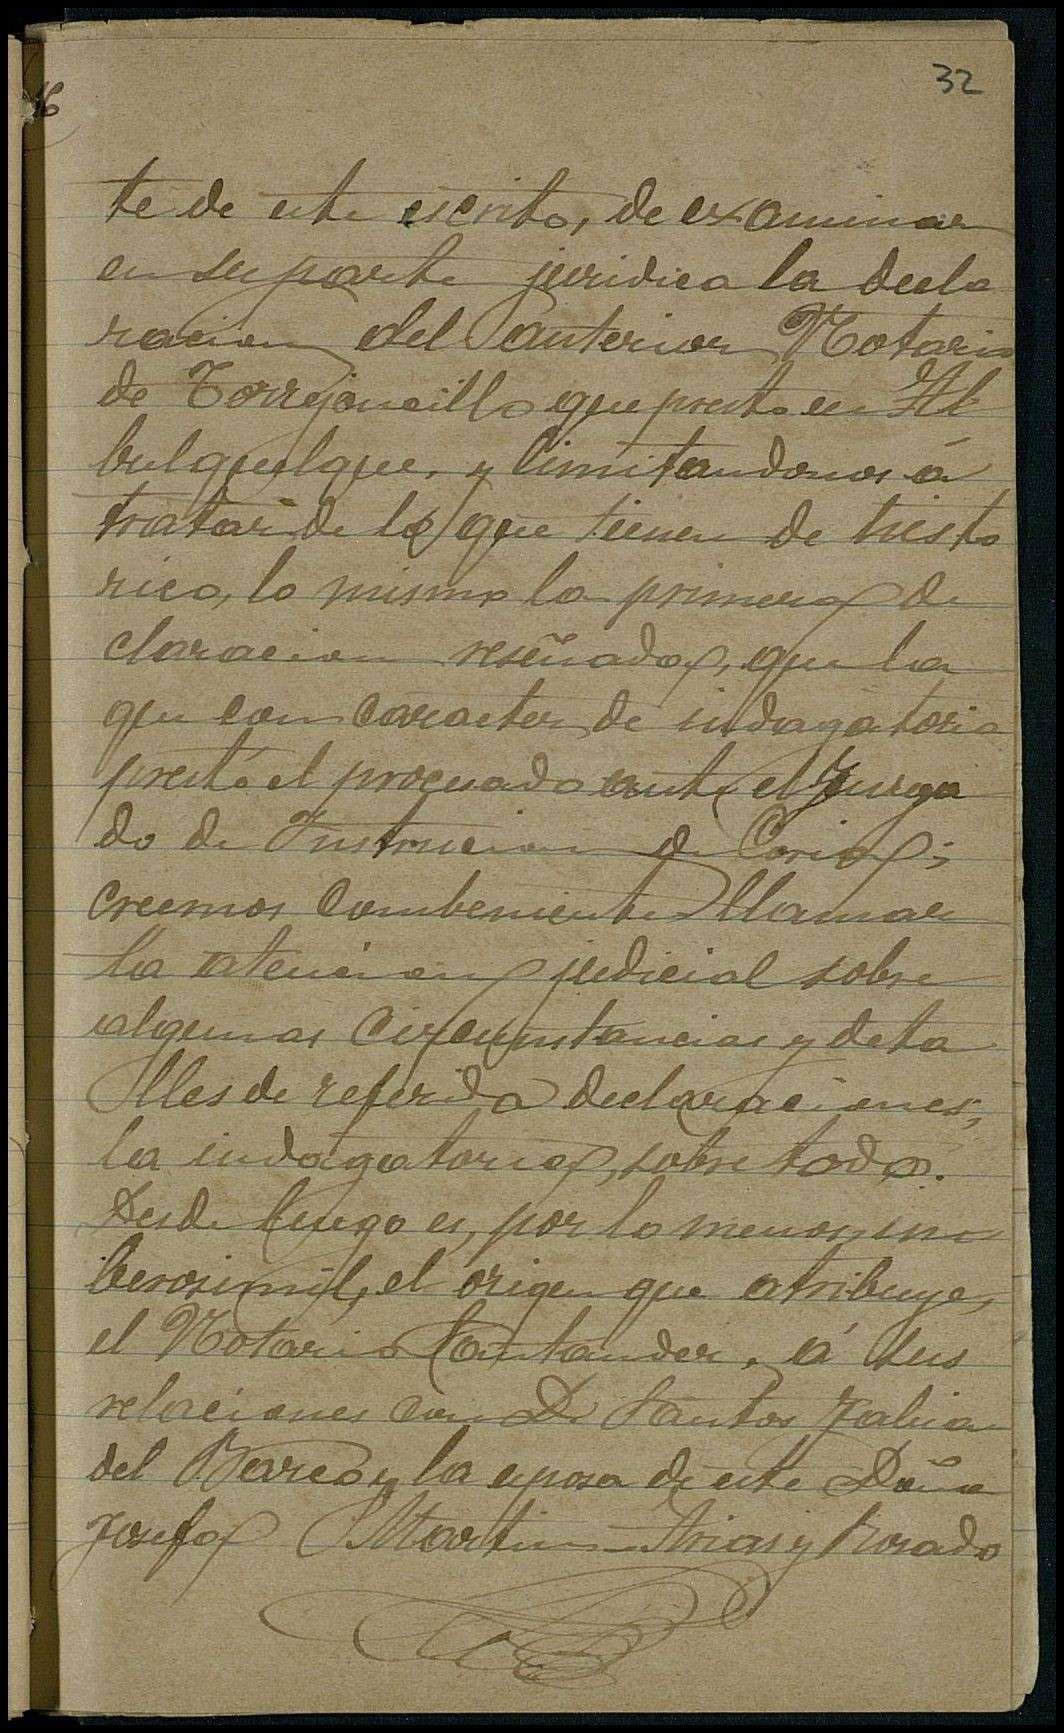 32
te de este escrito, de examinar
en su parte juridica la decla
racion del anterior Notario
de Torrejoncillo que presto en Al
bulquelque, y limitandonos á
tratar de lo que tienen de histo
rico, lo mismo la primera de
claracion reseñada, que la
que con caracter de indagatoria
prestó el procesado ante el Juzga
do de Instrucion de Coria;
creemos combeniente llamar
la atencion judicial sobre
algunas circunstancias y deta
lles de referida declaraciones,
la indagatoria, sobre todo.
Desde luego es, por lo menos, in
berosimil, el origen que atribuye,
el Notario Santander, á sus
relaciones con Dn Santos Julian
del Barco y la esposa de este Doña
Josefa Martin Arias y Rosado